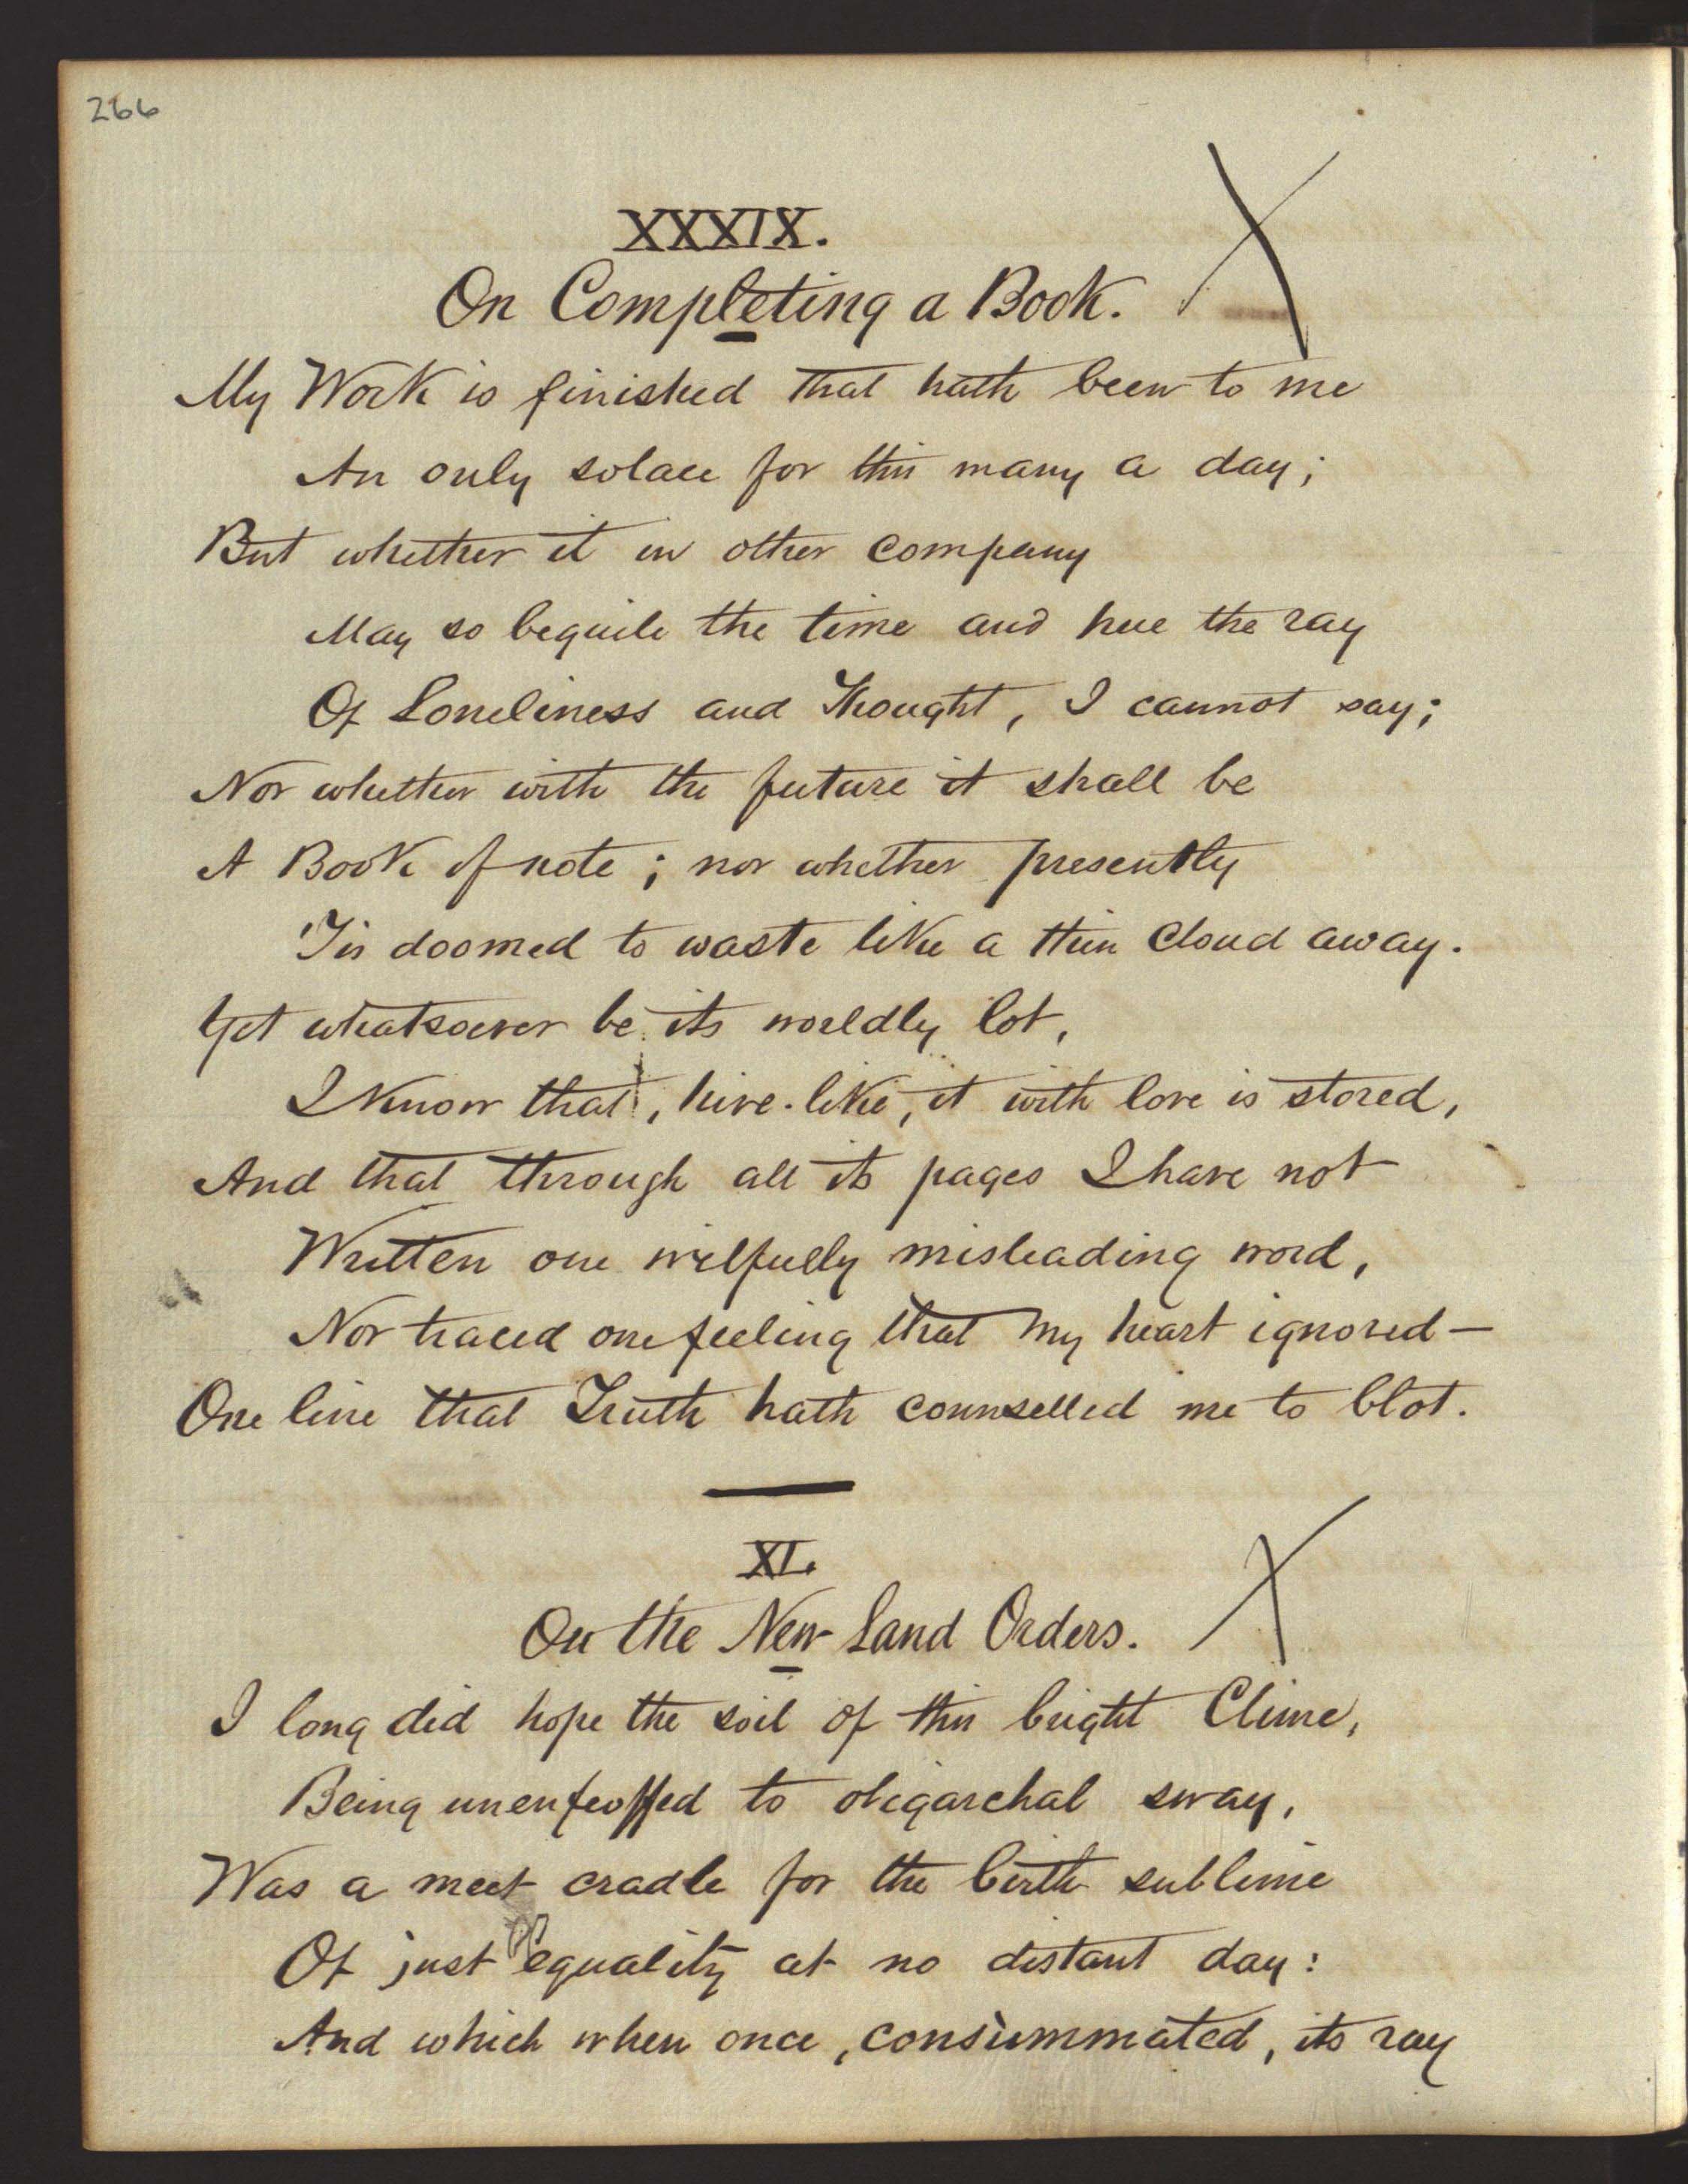 266
XXXIX.
On Completing a Book. X
My Work is finished that hath been to me
An only solace for this many a day;
But whether it in other company
May so beguile the time and hue the ray
Of Loneliness and Thought, I cannot say;
Nor whether with the future it shall be
A Book of note; nor whether presently
'Tis doomed to waste like a thin cloud away.
Yet whatsoever be its worldly lot,
I know that, hive-like, it with love is stored,
And that through all its pages I have not
Written one wilfully misleading word,
Nor traced one feeling that my heart ignored—
One line that Truth hath counselled me to blot.
XL.
On the New Land Orders. X
I long did hope the soil of this bright Clime,
Being unenfeoffed to oligarchal sway,
Was a meet cradle for the birth sublime
Of just equality at no distant day:
And which when once, consummated, its ray